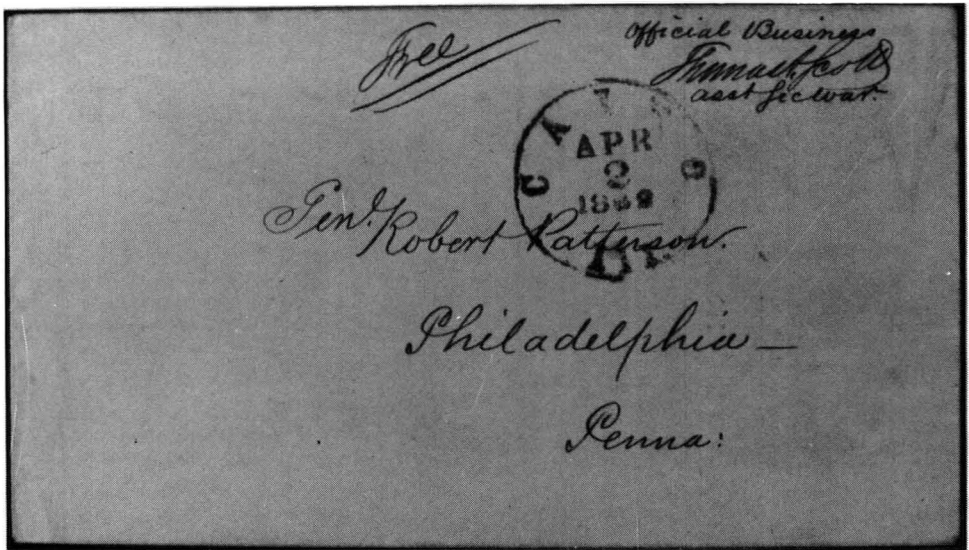 Free
Official Business
Thomas A. Scott
asst Sec War.
CAIRO
APR
2
1862
Ill.
Genl. Robert Patterson.
Philadelphia —
Penna: